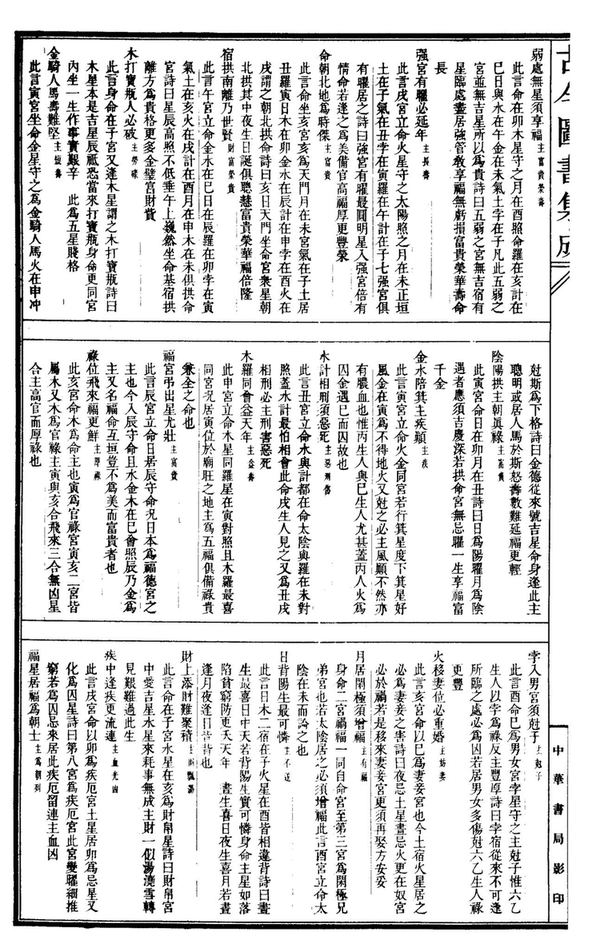 古今圖書集成
弱處無星須享福 主富貴榮壽
此言命在卯木星守之月在酉照命羅在亥計在
巳日與水在午金在未氣土孛在子凡此五弱之
宮並無吉星所以爲貴詩曰五弱之宮無吉宿有
星臨處盡居強管教享福無虧損富貴榮華壽命
長
强宮有曜必延年 主長壽
此言戌宮立命火星守之太陽照之月在未正垣
土在子氣在丑孛在寅羅在午計在子七强宮俱
有曜居之詩曰强宮有曜最圓明星入强宮倍有
情命若逢之爲美備官高福厚更豐榮
命朝北地爲時傑 主富貴
此言命坐亥宮亥爲天門月在未宮氣在子土居
丑羅寅日木在卯金水在辰計在申孛在酉火在
戌謂之朝北拱詩曰亥曰天門坐命宮衆星朝
北拱其中夜生日誕俱聰慧富貴榮華福倍隆
宿拱南離乃世賢 財富榮貴
此言午宮立命金水在巳日在辰羅在卯孛在寅
氣土在亥火在戌計在酉月在申木在未俱拱命
宮詩曰星辰高照不低垂午上巍然坐命基宿拱
離方爲貴格更多金璧宮財貲
木打寶瓶人必破 主勞碌
此言身命在子宮又逢木星謂之木打寶瓶詩曰
木星本是吉星辰祗恐當來打寶瓶身命更同宮
內坐一生作事實艱辛 此爲五星賤格
金騎人馬壽難堅 主損壽
此言寅宮坐命金星守之爲金騎人馬火在申冲
尅斯爲下格詩曰金德從來號吉星命身逢此主
聰明或居人馬於斯怒壽數難延福更輕
陰陽拱主朝眞祿 主富貴
此寅宮命日在卯月在丑詩曰日爲陽曜月爲陰
遇者應須吉慶深若拱命宮無忌曜一生享福富
千金
金水陪箕主疾顚 主疾
此言寅宮立命火金同宮若行箕星度下箕星好
風金在寅爲不得地火又尅之必主風顚不然亦
有膿血也惟丙生人與巳生人尤甚蓋丙人火爲
囚金遇巳而囚故也
水計相刑須惡死 主惡刑傷
此言丑宮立命水與計都在命太陰與羅在未對
照蓋水計最怕相會此命戌生人見之又爲丑戌
相刑必主刑害惡死
木羅同會益天年 主益壽
此申宮立命木星同羅星在寅對照且木羅最喜
同宮況居寅位於廟旺之地主爲五福俱備祿貴
兼全之命也
福宮弔出星尤壯 主富貴
此言辰宮立命日居辰守命況日本爲福德宮之
主也今入辰守命且水金木在巳會照辰乃金爲
主又名福命互垣豈不爲美而富貴者也
祿位飛來福更鮮 主厚祿
此亥宮命木爲命主也寅爲官祿宮寅亥二宮皆
屬木又木爲官祿主寅與亥合飛來三合無凶星
合主高官而厚祿也
孛入男宮須尅子 主尅子
此言酉命巳爲男女宮孛星守之主尅子惟六乙
生人以孛爲祿反主豐厚詩曰孛宿從來不可逢
所臨之處必爲凶若居男女多傷尅六乙生人祿
更豐
火移妻位必重婚 主妨妻
此言亥宮命以巳爲妻妾宮也今土宿火星居之
必爲妻妾之害詩曰夜忌土星晝忌火更在奴宮
必於禍若是移來妻妾宮更須再娶方安妥
月居閑極須增福 主有福
身命二宮禍福一同自命宮至第三宮爲閑極兄
弟宮也若太陰居之必須增福此言酉宮立命太
陰在未而論之也
日背陽生最可憐 主不足
此言日木二宿在子火星在酉皆相違背詩曰晝
生最喜日中天若背陽生實可憐身命主星如落
陷貧窮防更夭天年 晝生喜日夜生喜月若晝
逢月夜逢日皆背也
財上添財難聚積 主漸飄蕩
此言命在子宮水星在亥爲財帛星詩曰財帛宮
中愛吉星水星來耗事無成主財一似湯澆雪轉
見艱難過此生
疾中逢疾更流連 主血光凶
此言戌宮命以卯爲疾厄宮土星居卯爲忌星又
化爲囚星詩曰第八宮爲疾厄宮此宮變曜細推
窮若爲囚忌來居此疾厄留連主血凶
福星居福爲朝士 主爲朝列
中華書局影印